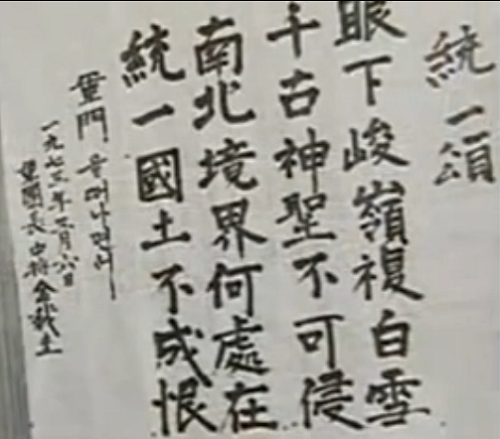 統一頌
眼下峻嶺複白雪
千古神聖不可侵
南北境界何處在
統一國土不成恨
軍門을 떠나면서
一九七三年三月六日
軍團長 中將 金載圭